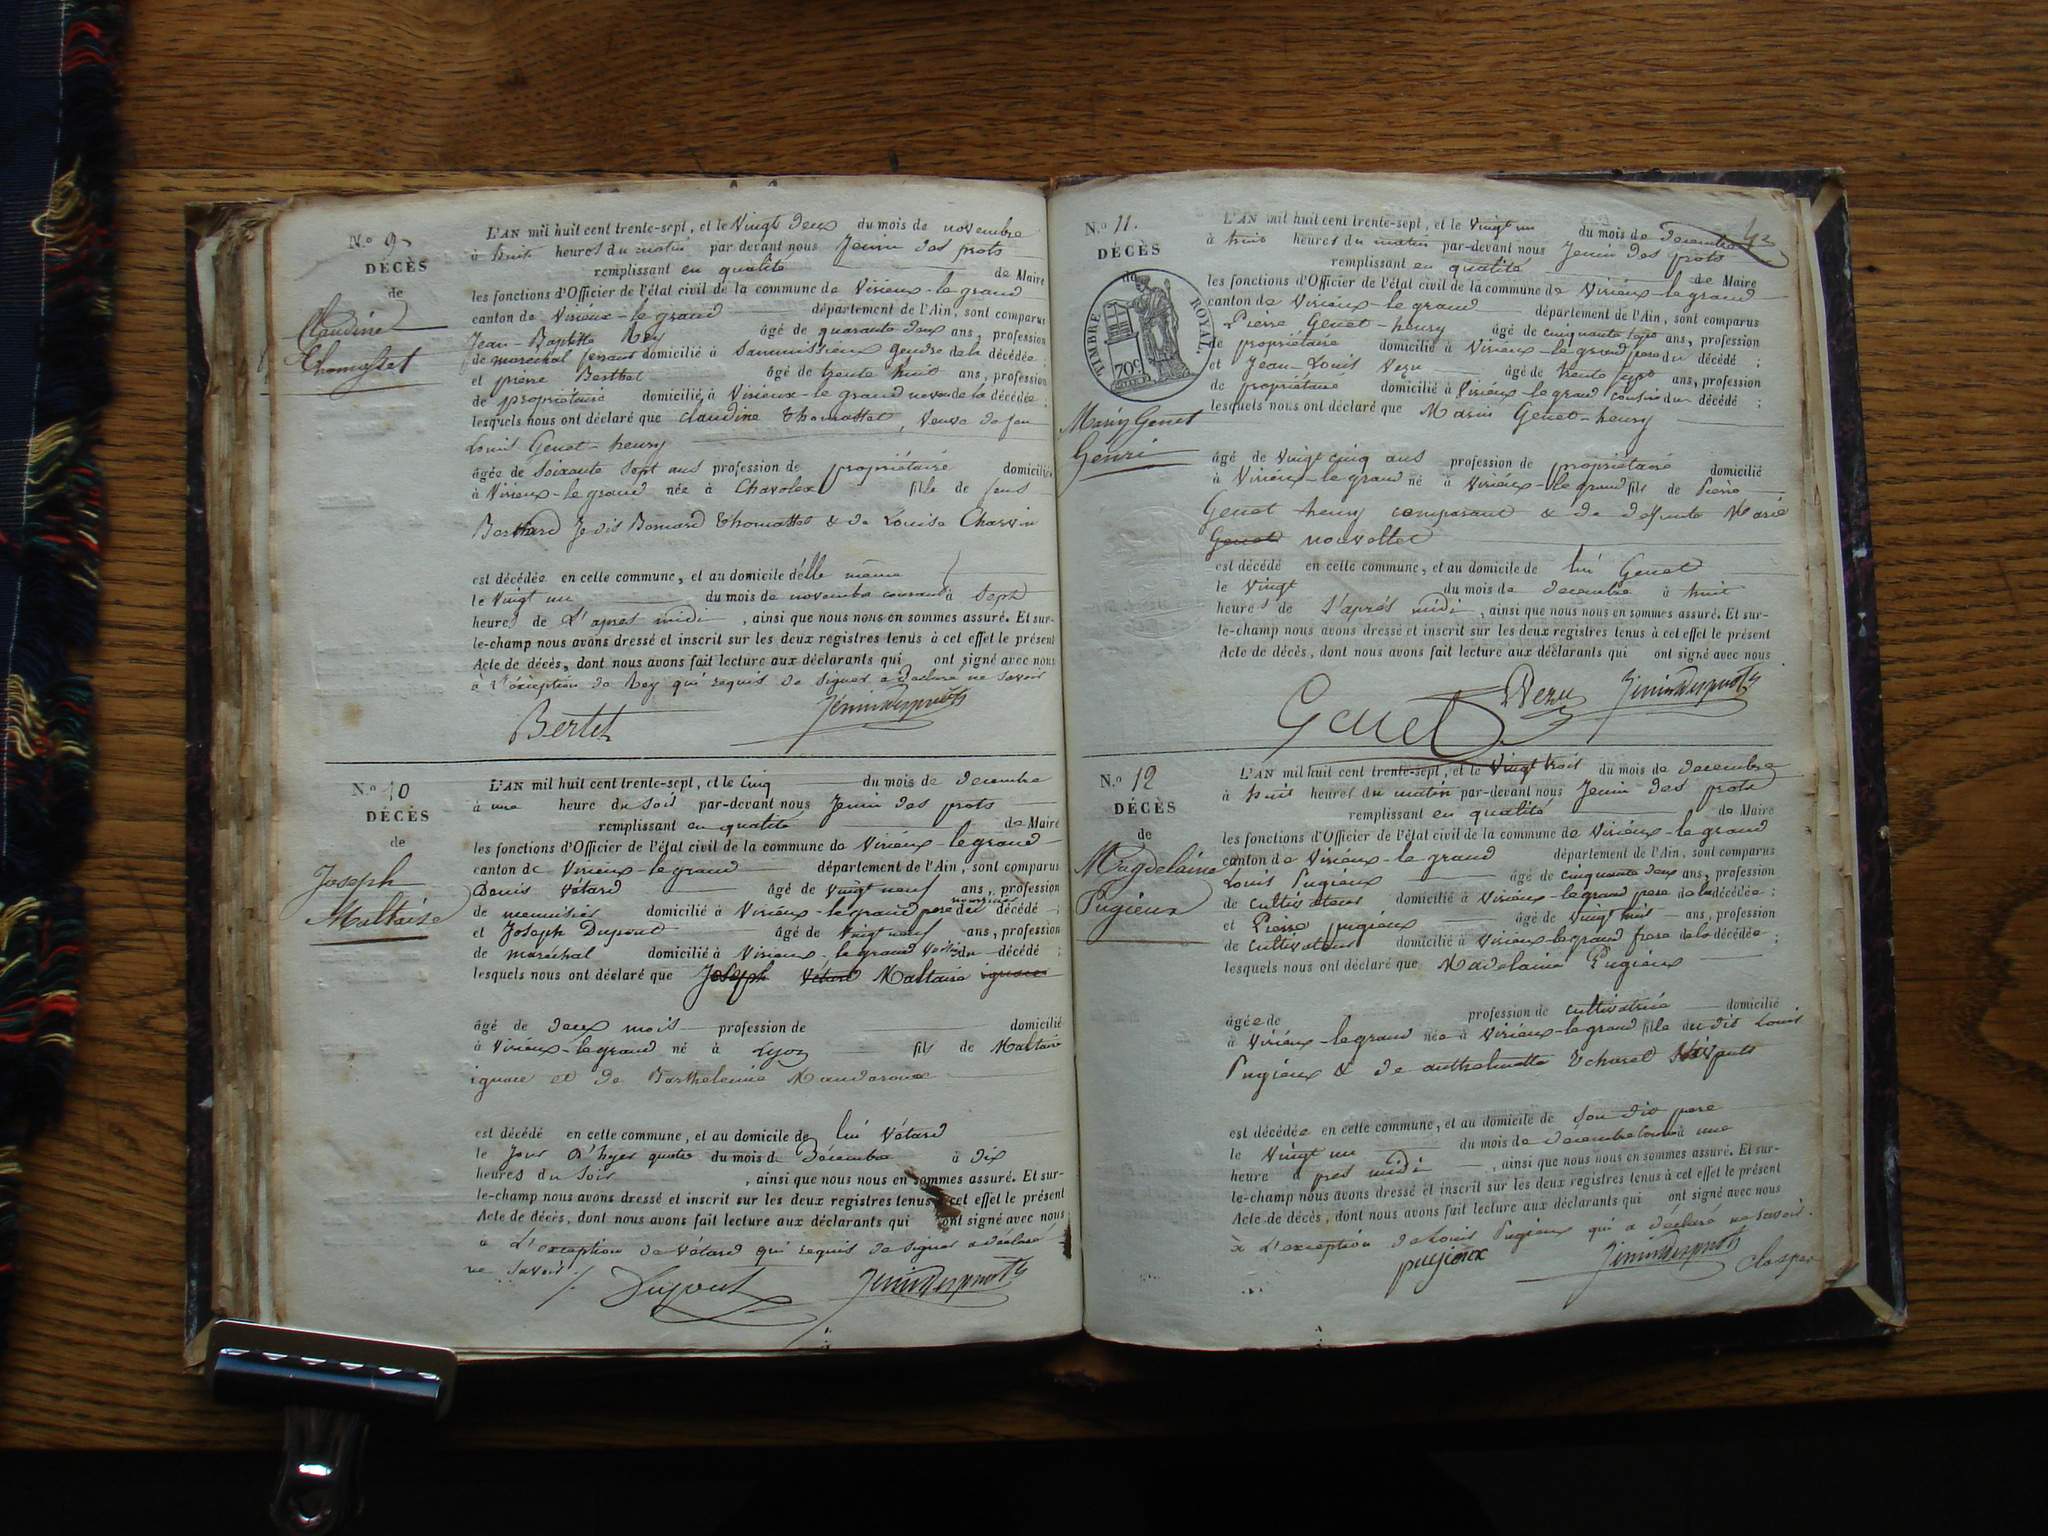 N.o 9
DÉCÈS
de
Claudine
Thomasset
L'AN mil huit cent trente-sept, et le Vingt deux du mois de novembre
à huit heures du matin par devant nous Jenin des prots
remplissant en qualité de Maire
les fonctions d'Officier de l'état civil de la commune de Virieux-le grand
canton de Virieux-le grand département de l'Ain, sont comparus
Jean-Baptiste Rey âgé de quarante deux ans, profession
de maréchal ferrant domicilié à Sammissieux gendre de la décédée ;
et pierre Berthet âgé de trente huit ans, profession
de propriétaire domicilié à Virieux-le grand neveu de la décédée ;
lesquels nous ont déclaré que Claudine Thomasset, veuve de feu
Louis Genet-henry
âgée de soixante sept ans profession de propriétaire domicilié
à Virieux-le grand née à Chavolex fille de feus
Bernard Je dis Bernard Thomasset & de Louise Charvin
est décédée en cette commune, et au domicile d'elle même
le Vingt un du mois de novembre courant à sept
heures de L'apres midi, ainsi que nous nous en sommes assuré. Et sur-
le-champ nous avons dressé et inscrit sur les deux registres tenus à cet effet le présent
Acte de décès, dont nous avons fait lecture aux déclarants qui ont signé avec nous
à L'exception de Rey qui requis de signer a déclaré ne savoir
Bertet Jenin Desprots
N.o 10
DÉCÈS
de
Joseph
Maltaise
L'AN mil huit cent trente-sept, et le Cinq du mois de decembre
à une heure du soir par-devant nous Jenin des prots
remplissant en qualité de Maire
les fonctions d'Officier de l'état civil de la commune de Virieux-le grand
canton de Virieux-le grand département de l'Ain, sont comparus
Denis Vétard âgé de vingt neuf ans, profession
de menuisier domicilié à Virieux-le grand pere nourricier du décédé ;
et Joseph Dupont âgé de Vingt neuf ans, profession
de maréchal domicilié à Virieux-le grand voisin du décédé ;
lesquels nous ont déclaré que Joseph Vétard Maltaise ignare
âgé de deux mois profession de domicilié
à Virieux-le grand né à Lyon fils de Maltaise
ignare et de Barthelemie
est décédé en cette commune, et au domicile de lui Vétard
le Jour d'hyer quatre du mois de Décembre à dix
heures du soir, ainsi que nous nous en sommes assuré. Et sur-
le-champ nous avons dressé et inscrit sur les deux registres tenus à cet effet le présent
Acte de décès, dont nous avons fait lecture aux déclarants qui ont signé avec nous
a L'exception de Vétard qui requis de signer a déclaré
ne savoir
Dupont Jenin Desprots
N.o 11.
DÉCÈS
de
TIMBRE ROYAL.
70c
Marin Genet
Genri
L'AN mil huit cent trente-sept, et le Vingt un du mois de Decembre
à huit heures du matin par-devant nous Jenin des prots
remplissant en qualité de Maire
les fonctions d'Officier de l'état civil de la commune de Virieux-le grand
canton de Virieux-le grand département de l'Ain, sont comparus
Pierre Genet-henry âgé de cinquante sept ans, profession
de propriétaire domicilié à Virieux-le grand pere du décédé ;
et Jean-Louis Vezu âgé de trente sept ans, profession
de propriétaire domicilié à Virieux-le grand cousin du décédé ;
lesquels nous ont déclaré que Marin Genet-henry
âgé de vingt cinq ans profession de propriétaire domicilié
à Virieux-le grand né à Virieux-le grand fils de Pierre
Genet henry comparant & de deffunte Marie
Genet nouvellet
est décédé en cette commune, et au domicile de lui Genet
le Vingt du mois de decembre à huit
heures de L'après midi, ainsi que nous nous en sommes assuré. Et sur-
le-champ nous avons dressé et inscrit sur les deux registres tenus à cet effet le présent
Acte de décès, dont nous avons fait lecture aux déclarants qui ont signé avec nous
Genet Vezu Jenin Desprots
N.o 12
DÉCÈS
de
Magdelaine
Pugieux
L'AN mil huit cent trente-sept, et le Vingt trois du mois de decembre
à huit heures du matin par-devant nous Jenin des prots
remplissant en qualité de Maire
les fonctions d'Officier de l'état civil de la commune de Virieux-le grand
canton de Virieux-le grand département de l'Ain, sont comparus
Louis Pugieux âgé de cinquante deux ans, profession
de cultivateur domicilié à Virieux-le grand pere de la décédée ;
et Pierre pugieux âgé de vingt huit ans, profession
de cultivateur domicilié à Virieux-le grand frere de la décédée ;
lesquels nous ont déclaré que Madelaine Pugieux
âgée de profession de cultivatrice domicilié
à Virieux-le grand née à Virieux-le grand fille du dit Louis
Pugieux & de anthelmette
est décédée en cette commune, et au domicile de son dit pere
le vingt un du mois de decembre courant à une
heure a pres midi, ainsi que nous nous en sommes assuré. Et sur-
le-champ nous avons dressé et inscrit sur les deux registres tenus à cet effet le présent
Acte de décès, dont nous avons fait lecture aux déclarants qui ont signé avec nous
à L'exception de Louis Pugieux qui a déclaré ne savoir.
pugieux Jenin Desprots